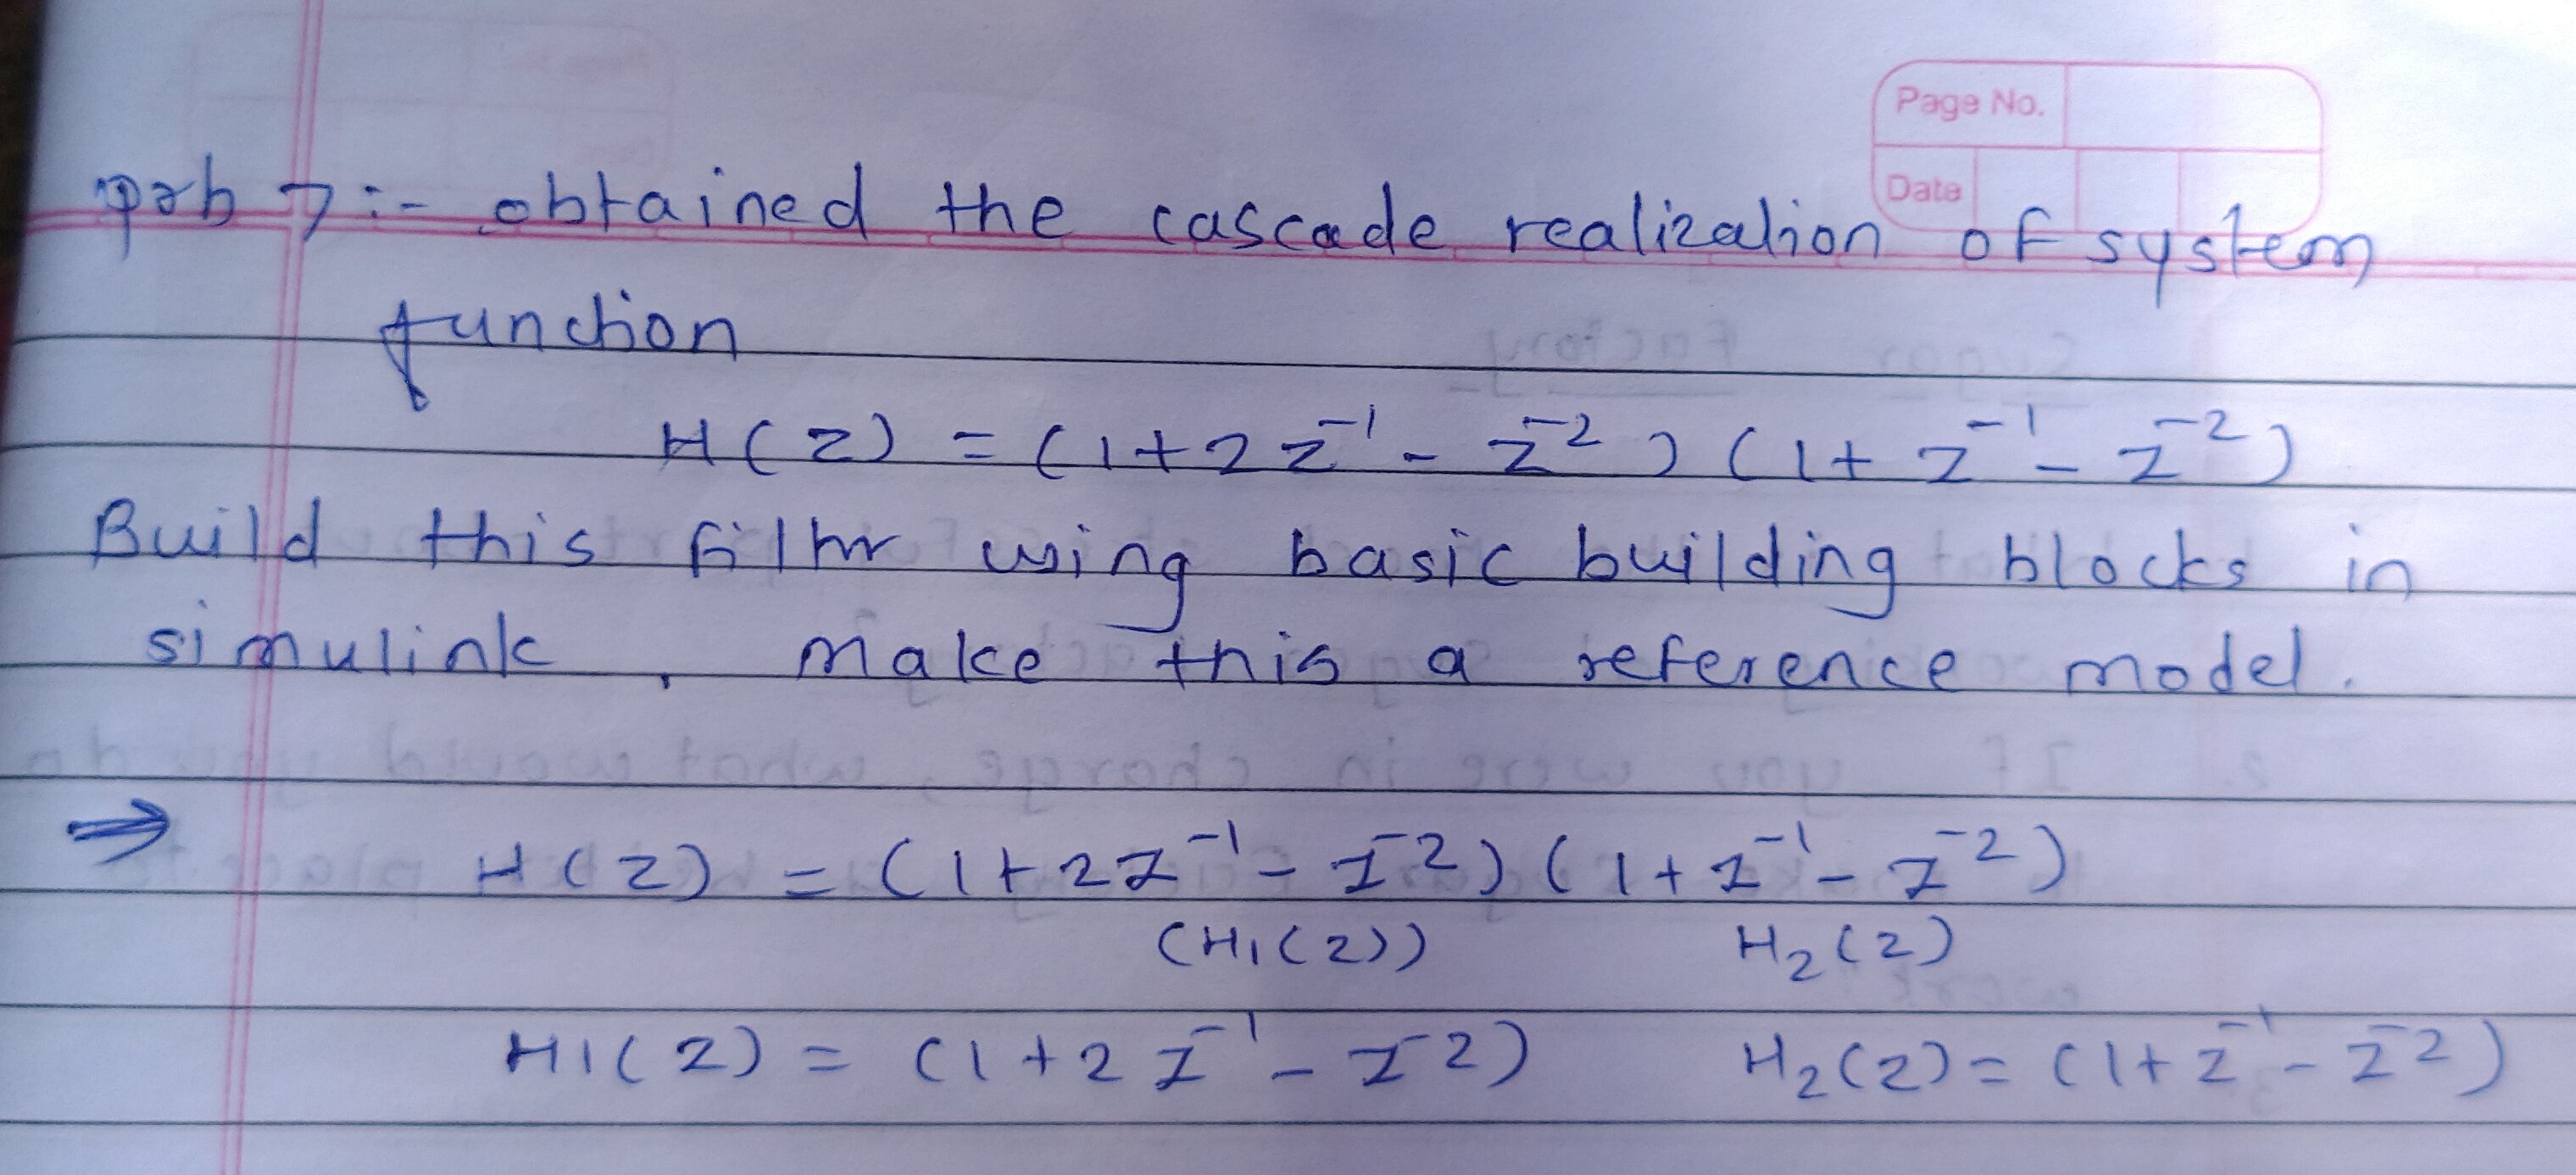 Page No.
Date
prb 7 :- obtained the cascade realization of system
function
H(z) = (1+2z⁻¹ - z⁻²) (1+ z⁻¹ - z⁻²)
Build this filter using basic building blocks in
simulink, make this a reference model.
⇒ H(z) = (1+2z⁻¹ - z⁻²) (1+z⁻¹ - z⁻²)
(H₁(z)) H₂(z)
H1(z) = (1+2z⁻¹ - z⁻²) H₂(z) = (1+z⁻¹ - z⁻²)